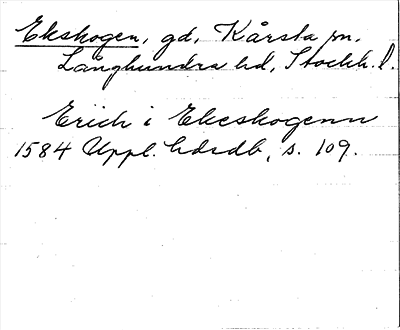 Ekskogen, gd, Kårsta sn,
Långhundra hd, Stockh. l.
Erich i Ekeskogenn
1584 Uppl. hdsdb, s. 109.